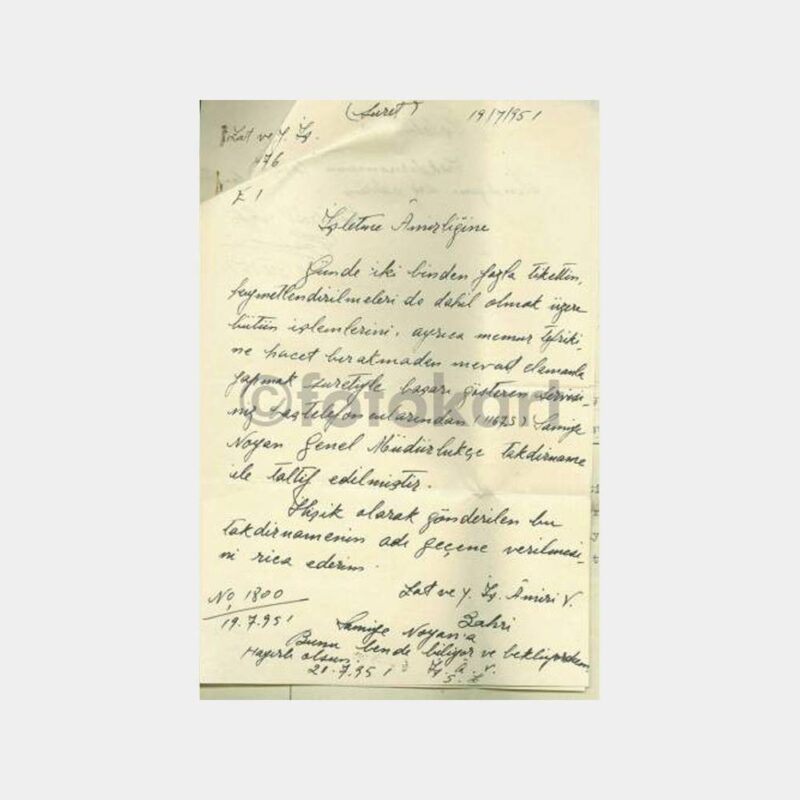 (Suret) 19/7/951
Zat ve Y. İş.
476
E 1
İşletme Âmirliğine
Günde iki binden fazla tiketin,
kıymetlendirilmeleri de dahil olmak üzere
bütün işlemlerini, ayrıca memur tefriki-
ne hacet bırakmadan mevcut elemanla
yapmak suretiyle başarı gösteren servisi-
niz baştelefoncularından (11675) Samiye
Noyan Genel Müdürlükçe takdirname
ile taltif edilmiştir.
İlişik olarak gönderilen bu
takdirnamenin adı geçene verilmesi-
ni rica ederim.
Zat ve Y. İş. Âmiri V.
No, 1800
19.7.951
Zahri
Samiye Noyan'a
Bunu bende biliyor ve bekliyordum
Hayırlı olsun. İş. A. V.
21.7.951
©fotokart